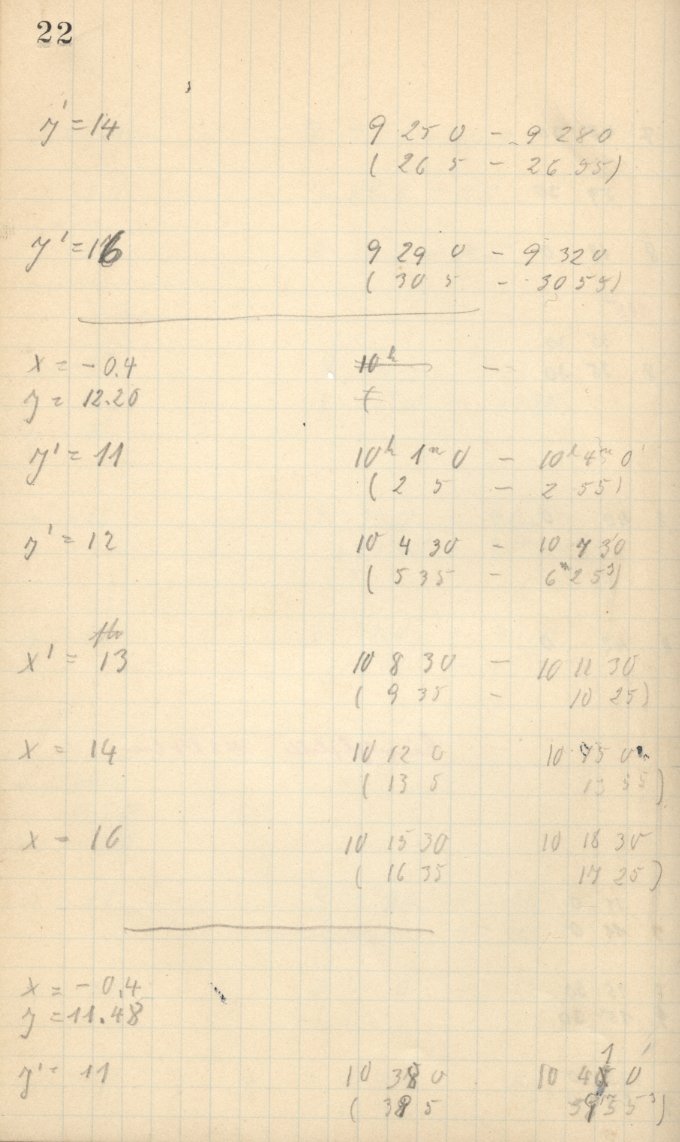 22
y' = 14 9 25 0 - 9 28 0
( 26 5 - 26 55)
y' = 16 9 29 0 - 9 32 0
( 30 5 - 30 55)
x = - 0.4 10h -
y = 12.20 (
y' = 11 10h 1m 0 - 10h 4m 0
( 2 5 - 2 55)
y' = 12 10 4 30 - 10 7 30
( 5 35 - 6m 25s)
x' = 13 10 8 30 - 10 11 30
( 9 35 - 10 25)
x = 14 10 12 0 10 15 0
( 13 5 13 55)
x = 16 10 15 30 10 18 30
( 16 35 17 25)
x = - 0.4
y = 11.48
y' = 11 10 38 0 10 41 0
( 39 5 39 55)